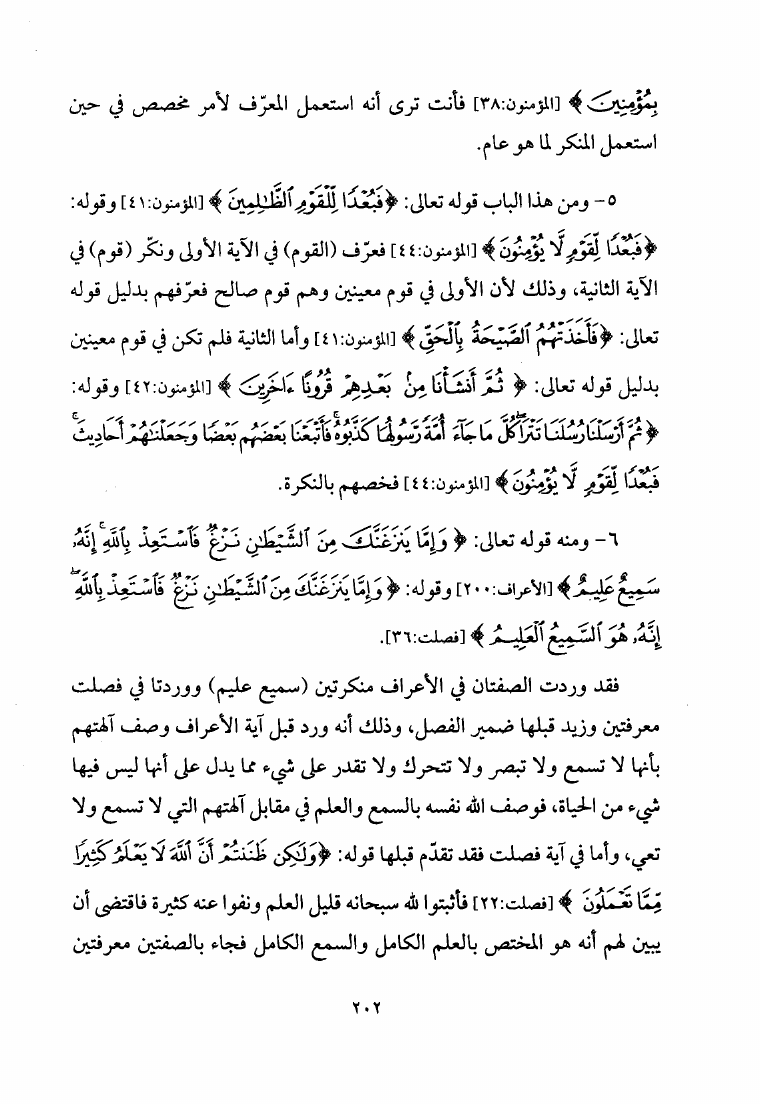 بِمُؤْمِنِينَ ﴾ [المؤمنون:٣٨] فأنت ترى أنه استعمل المعرّف لأمر مخصص في حين
استعمل المنكر لما هو عام.
٥- ومن هذا الباب قوله تعالى: ﴿فَبُعْدًا لِّلْقَوْمِ ٱلظَّٰلِمِينَ ﴾ [المؤمنون:٤١] وقوله:
﴿فَبُعْدًا لِّقَوْمٍ لَّا يُؤْمِنُونَ ﴾ [المؤمنون:٤٤] فعرّف (القوم) في الآية الأولى ونكّر (قوم) في
الآية الثانية، وذلك لأن الأولى في قوم معينين وهم قوم صالح فعرّفهم بدليل قوله
تعالى: ﴿فَأَخَذَتْهُمُ ٱلصَّيْحَةُ بِٱلْحَقِّ ﴾ [المؤمنون:٤١] وأما الثانية فلم تكن في قوم معينين
بدليل قوله تعالى: ﴿ ثُمَّ أَنشَأْنَا مِنۢ بَعْدِهِمْ قُرُونًا ءَاخَرِينَ ﴾ [المؤمنون:٤٢] وقوله:
﴿ ثُمَّ أَرْسَلْنَا رُسُلَنَا تَتْرَاۖ كُلَّ مَا جَآءَ أُمَّةً رَّسُولُهَا كَذَّبُوهُۚ فَأَتْبَعْنَا بَعْضَهُم بَعْضًا وَجَعَلْنَٰهُمْ أَحَادِيثَۚ
فَبُعْدًا لِّقَوْمٍ لَّا يُؤْمِنُونَ ﴾ [المؤمنون:٤٤] فخصهم بالنكرة.
٦- ومنه قوله تعالى: ﴿ وَإِمَّا يَنزَغَنَّكَ مِنَ ٱلشَّيْطَٰنِ نَزْغٌ فَٱسْتَعِذْ بِٱللَّهِۚ إِنَّهُۥ
سَمِيعٌ عَلِيمٌ ﴾ [الأعراف:٢٠٠] وقوله: ﴿ وَإِمَّا يَنزَغَنَّكَ مِنَ ٱلشَّيْطَٰنِ نَزْغٌ فَٱسْتَعِذْ بِٱللَّهِۖ
إِنَّهُۥ هُوَ ٱلسَّمِيعُ ٱلْعَلِيمُ ﴾ [فصلت:٣٦].
فقد وردت الصفتان في الأعراف منكرتين (سميع عليم) ووردتا في فصلت
معرفتين وزيد قبلها ضمير الفصل، وذلك أنه ورد قبل آية الأعراف وصف آلهتهم
بأنها لا تسمع ولا تبصر ولا تتحرك ولا تقدر على شيء مما يدل على أنها ليس فيها
شيء من الحياة، فوصف الله نفسه بالسمع والعلم في مقابل آلهتهم التي لا تسمع ولا
تعي، وأما في آية فصلت فقد تقدّم قبلها قوله: ﴿وَلَٰكِن ظَنَنتُمْ أَنَّ ٱللَّهَ لَا يَعْلَمُ كَثِيرًا
مِّمَّا تَعْمَلُونَ ﴾ [فصلت:٢٢] فأثبتوا لله سبحانه قليل العلم ونفوا عنه كثيرة فاقتضى أن
يبين لهم أنه هو المختص بالعلم الكامل والسمع الكامل فجاء بالصفتين معرفتين
٢٠٢